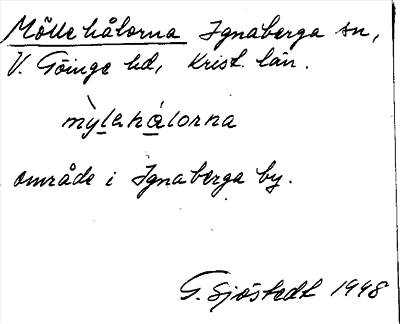 Möllehålorna Ignaberga sn,
V. Göinge hd, Krist. län.
mỳlehálorna
område i Ignaberga by.
G. Sjöstedt 1948